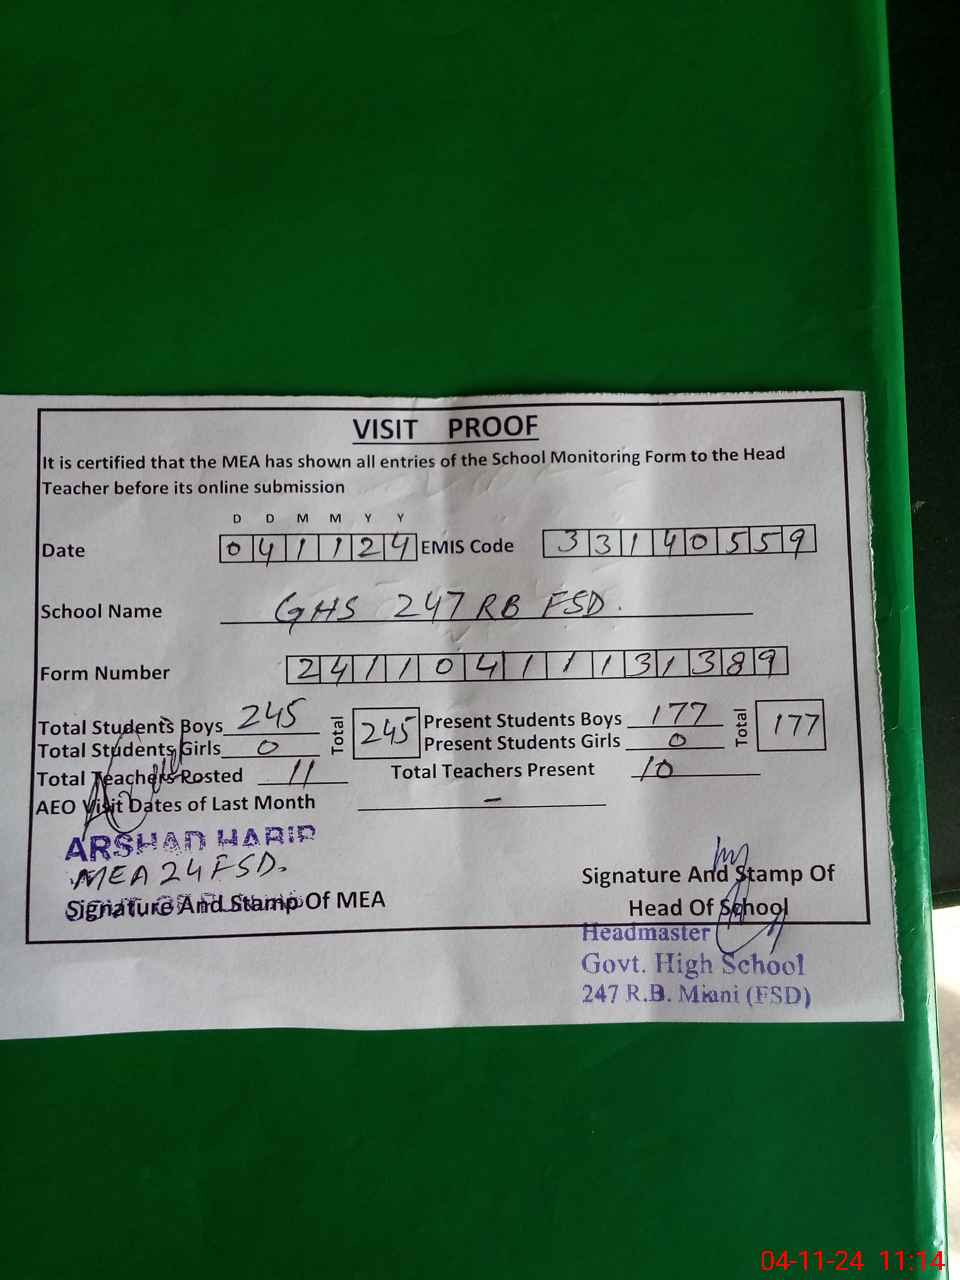 VISIT PROOF
It is certified that the MEA has shown all entries of the School Monitoring Form to the Head
Teacher before its online submission
D D M M Y Y
Date 041124 EMIS Code 33140559
School Name GHS 247 RB FSD.
Form Number 24110411131389
Total Students Boys 245 Total 245 Present Students Boys 177 Total 177
Total Students Girls 0 Present Students Girls 0
Total Teachers Posted 11 Total Teachers Present 10
AEO Visit Dates of Last Month -
ARSHAD HABIB
MEA 24 FSD.
Signature And Stamp Of MEA
Signature And Stamp Of
Head Of School
Headmaster
Govt. High School
247 R.B. Miani (FSD)
04-11-24 11:14